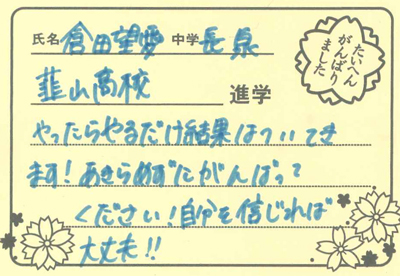 氏名 倉田望愛 中学 長泉
韮山高校 進学
たいへん
がんばり
ました
やったらやるだけ結果はついてき
ます!あきらめずにがんばって
ください!自分を信じれば
大丈夫!!